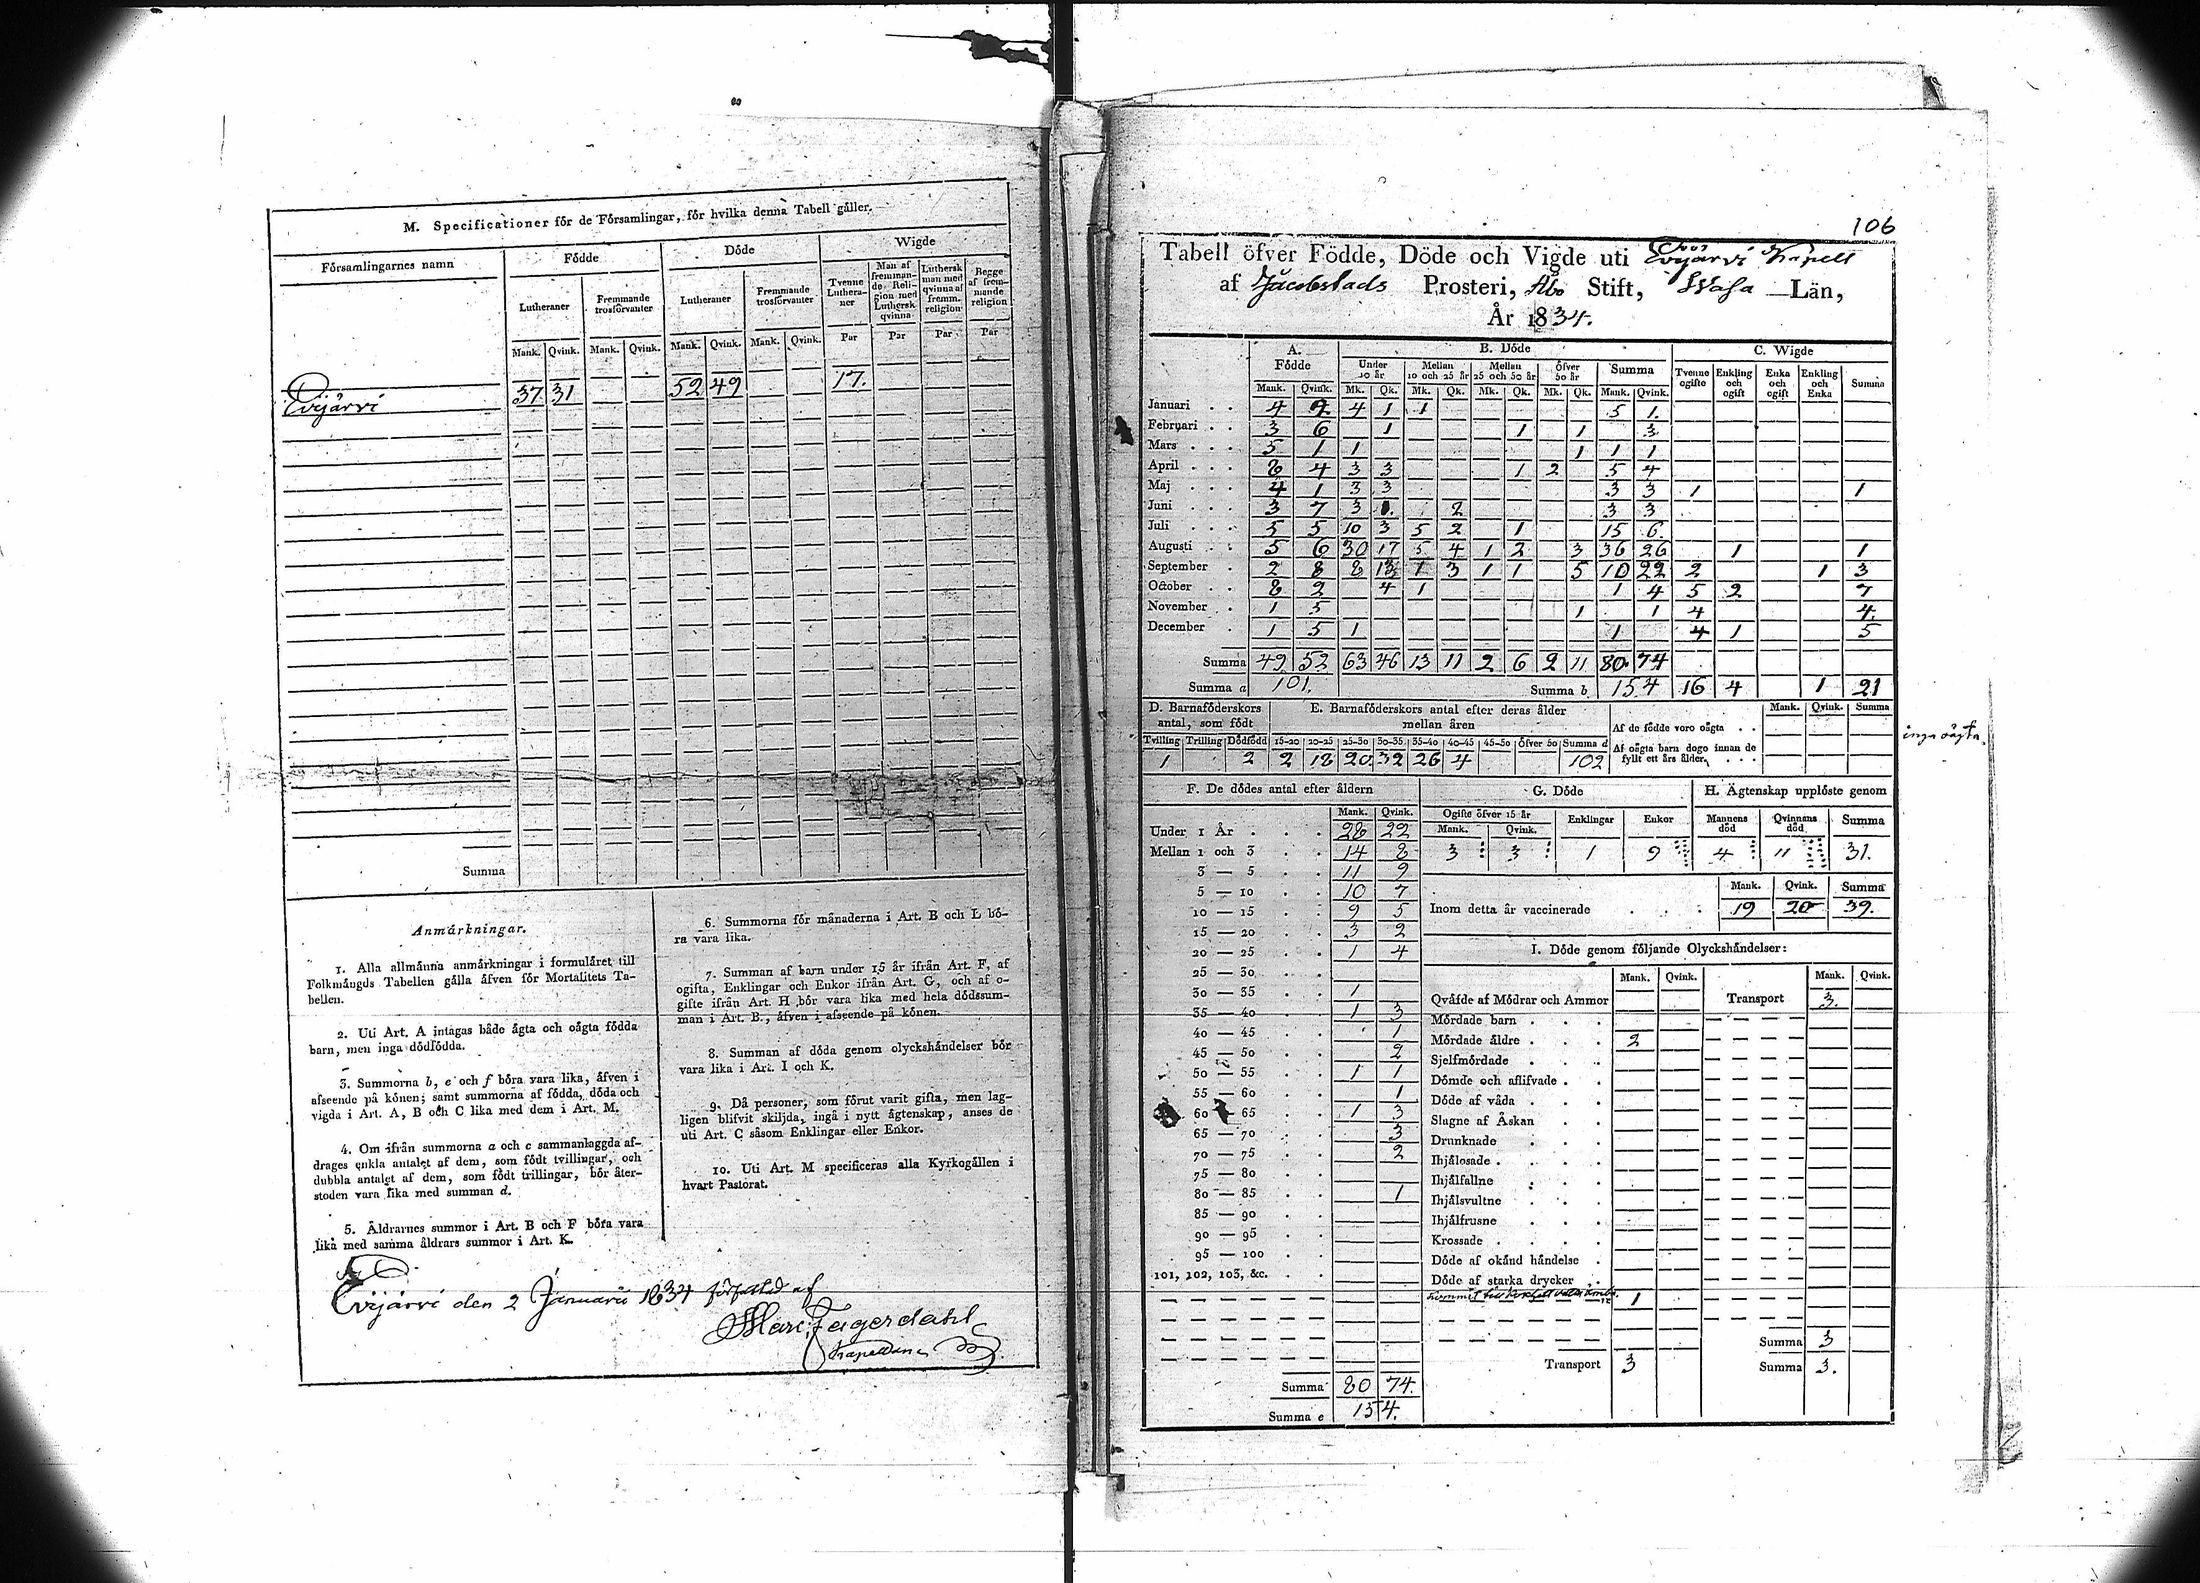 M. Specificationer för de Församlingar, för hvilka denna Tabell gäller.
Församlingarnes namn Födde Döde Wigde
Lutheraner Fremmande trosförvanter Lutheraner Fremmande trosförvanter Tvenne Lutheraner Man af fremmande Religion med Luthersk qvinna Luthersk man med qvinna af fremm. religion Begge af fremmande religion
Mank. Qvink. Mank. Qvink. Mank. Qvink. Mank. Qvink. Par Par Par Par
Evijärvi 37 31 52 49 17.
Summa
Anmärkningar.
1. Alla allmänna anmärkningar i formuläret till
Folkmängds Tabellen gälla äfven för Mortalitets Ta-
bellen.
2. Uti Art. A intagas både ägta och oägta födda
barn, men inga dödfödda.
3. Summorna b, e och f böra vara lika, äfven i
afseende på könen; samt summorna af födda, döda och
vigda i Art. A, B och C lika med dem i Art. M.
4. Om ifrån summorna a och c sammanlaggda af-
drages enkla antalet af dem, som födt tvillingar, och
dubbla antalet af dem, som födt trillingar, bör åter-
stoden vara lika med summan d.
5. Åldrarnes summor i Art. B och F böra vara
lika med samma åldrars summor i Art. K.
6. Summorna för månaderna i Art. B och L bö-
ra vara lika.
7. Summan af barn under 15 år ifrån Art. F, af
ogifta, Enklingar och Enkor ifrån Art. G, och af o-
gifte ifrån Art. H bör vara lika med hela dödssum-
man i Art. B., äfven i afseende på könen.
8. Summan af döda genom olyckshändelser bör
vara lika i Art. I och K.
9. Då personer, som förut varit gifta, men lag-
ligen blifvit skiljda, ingå i nytt ägtenskap, anses de
uti Art. C såsom Enklingar eller Enkor.
10. Uti Art. M specificeras alla Kyrkogällen i
hvart Pastorat.
Evijärvi den 2 Januarii 1834 författad af
Marc: Fagerdahl
Kapellan
106
Tabell öfver Födde, Döde och Vigde uti Evijärvi Kapell
af Jacobstads Prosteri, Åbo Stift, Wasa Län,
År 1834.
A. Födde B. Döde C. Wigde
Under 10 år Mellan 10 och 25 år Mellan 25 och 50 år Öfver 50 år Summa Tvenne ogifte Enkling och ogift Enka och ogift Enkling och Enka Summa
Mank. Qvink. Mk. Qk. Mk. Qk. Mk. Qk. Mk. Qk. Mank. Qvink.
Januari 4 2 4 1 1 5 1.
Februari 3 6 1 1 1 3
Mars 5 1 1 1 1 1
April 8 4 3 3 1 2 5 4
Maj 4 1 3 3 3 3 1 1
Juni 3 7 3 1. 2 3 3
Juli 5 5 10 3 5 2 1 15 6.
Augusti 5 6 30 17 5 4 1 2 3 36 26 1 1
September 2 8 8 13 1 3 1 1 5 10 22 2 1 3
October 8 2 4 1 1 4 5 2 7
November 1 5 1 1 4 4.
December 1 5 1 1 4 1 5
Summa 49 52 63 46 13 11 2 6 2 11 80. 74
Summa a 101. Summa b 154 16 4 1 21
D. Barnaföderskors antal, som födt E. Barnaföderskors antal efter deras ålder mellan åren Mank. Qvink. Summa
Tvilling Trilling Dödfödd 15-20 20-25 25-30 30-35 35-40 40-45 45-50 Öfver 50 Summa d
1 2 2 18 20 32 26 4 102
Af de födde voro oägta
Af oägta barn dogo innan de
fyllt ett års ålder.
inga oägta.
F. De dödes antal efter åldern
Mank. Qvink.
Under 1 År 28 22
Mellan 1 och 3 14 8
3 — 5 11 9
5 — 10 10 7
10 — 15 9 5
15 — 20 3 2
20 — 25 1 4
25 — 30
30 — 35 1
35 — 40 1 3
40 — 45 1
45 — 50 2
50 — 55 1 1
55 — 60 1
60 — 65 1 3
65 — 70 3
70 — 75 2
75 — 80
80 — 85 1
85 — 90
90 — 95
95 — 100
101, 102, 103, &c.
Summa 80 74.
Summa e 154.
G. Döde H. Ägtenskap upplöste genom
Ogifte öfver 15 år Enklingar Enkor Mannens död Qvinnans död Summa
Mank. Qvink.
3 3 1 9 4 11 31.
Mank. Qvink. Summa
Inom detta år vaccinerade 19 20 39.
I. Döde genom följande Olyckshändelser:
Mank. Qvink. Mank. Qvink.
Qväfde af Mödrar och Ammor Transport 3.
Mördade barn
Mördade äldre 2
Sjelfmördade
Dömde och aflifvade
Döde af våda
Slagne af Åskan
Drunknade
Ihjälosade
Ihjälfallne
Ihjälsvultne
Ihjälfrusne
Krossade
Döde af okänd händelse
Döde af starka drycker
1
Summa 3
Transport 3 Summa 3.